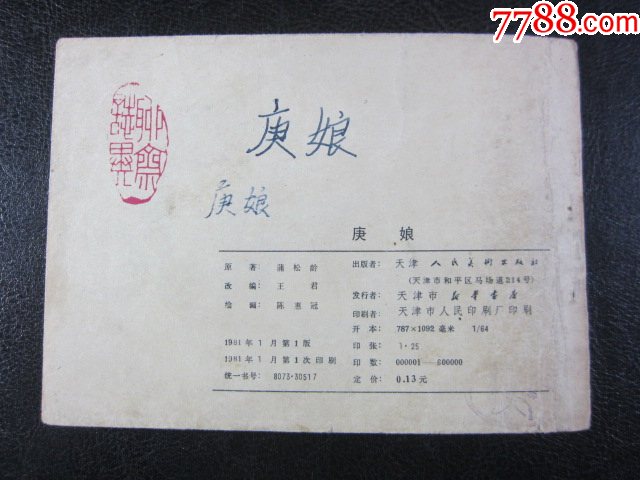 7788.com
聊斋志异
庚娘
庚娘
庚 娘
原 著： 蒲 松 龄
改 编： 王 君
绘 画： 陈 惠 冠
1981 年 1 月 第 1 版
1981 年 1 月 第 1 次 印 刷
统一书号： 8073·30517
出版者： 天津 人民美术出版社
(天津市和平区马场道214号)
发行者： 天津市 新华书店
印刷者： 天津市人民印刷厂印刷
开 本： 787×1092 毫米 1/64
印 张： 1·25
印 数： 000001—600000
定 价： 0.13 元